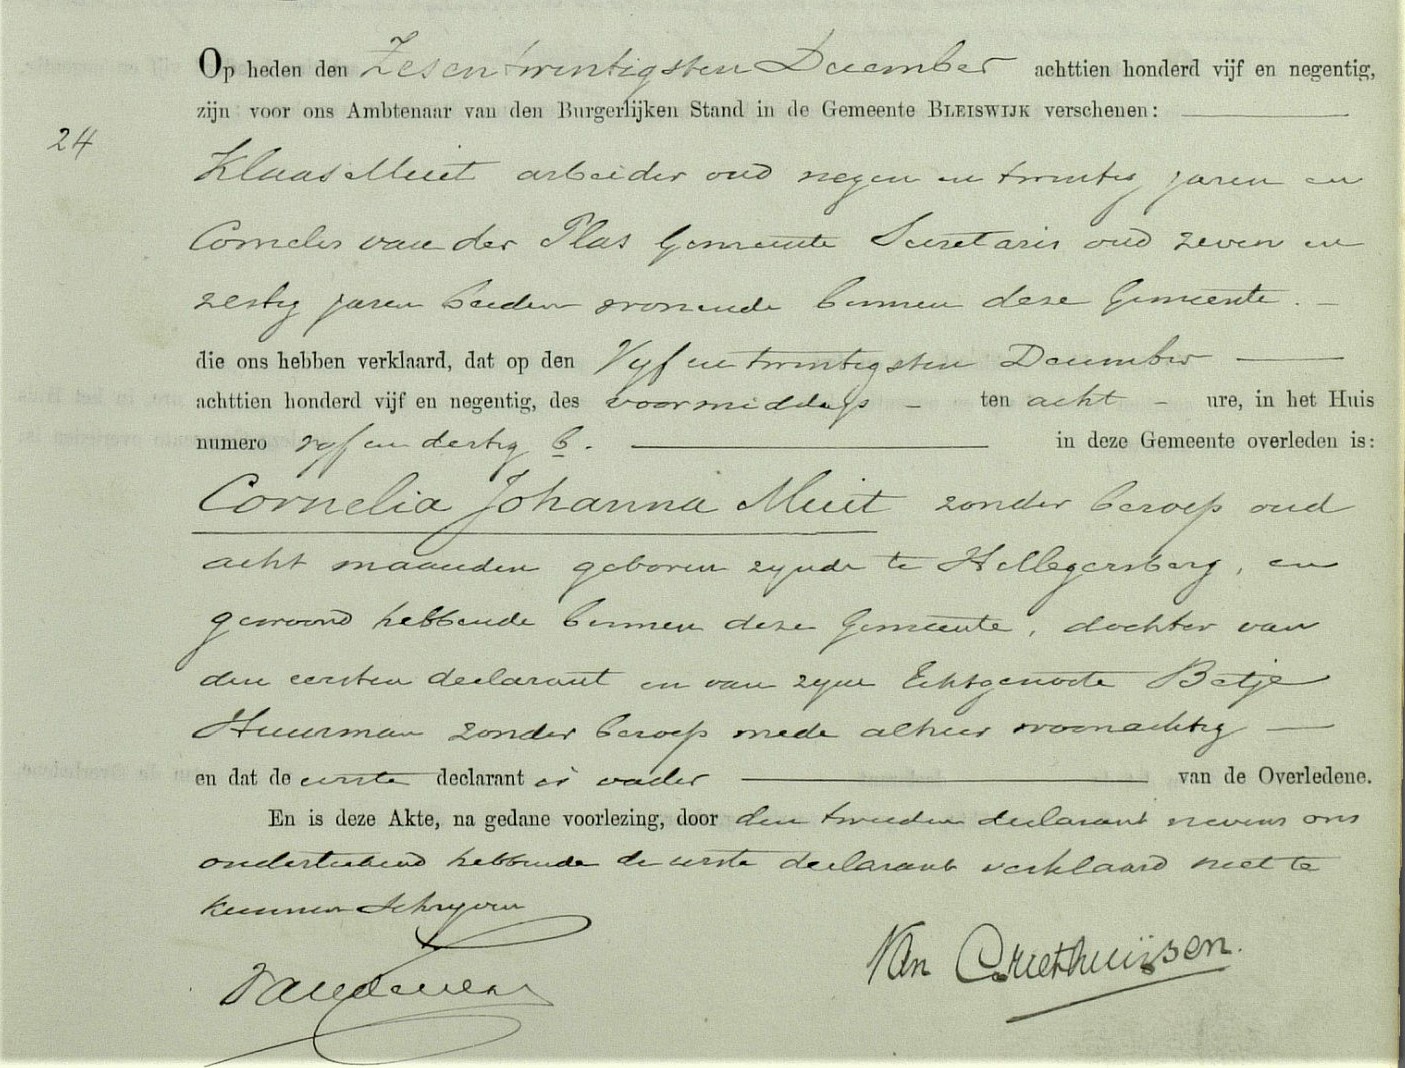 Op heden den Zesentwintigsten December achttien honderd vijf en negentig,
zijn voor ons Ambtenaar van den Burgerlijken Stand in de Gemeente BLEISWIJK verschenen:
24
Klaas Muit arbeider oud negen en twintig jaren en
Cornelis van der Plas Gemeente Secretaris oud zeven en
zestig jaren beiden wonende binnen deze Gemeente.
die ons hebben verklaard, dat op den Vyf en twintigsten December
achttien honderd vijf en negentig, des voormiddags ten acht ure, in het Huis
numero vyf en dertig b. in deze Gemeente overleden is:
Cornelia Johanna Muit zonder beroep oud
acht maanden geboren zynde te Hillegersberg, en
gewoond hebbende binnen deze Gemeente, dochter van
den eersten declarant en van zyne Echtgenoote Betje
Huurman zonder beroep mede alhier woonachtig
en dat de eerste declarant is vader van de Overledene.
En is deze Akte, na gedane voorlezing, door den tweeden declarant nevens ons
onderteekend hebbende de eerste declarant verklaard niet te
kunnen schryven
Van